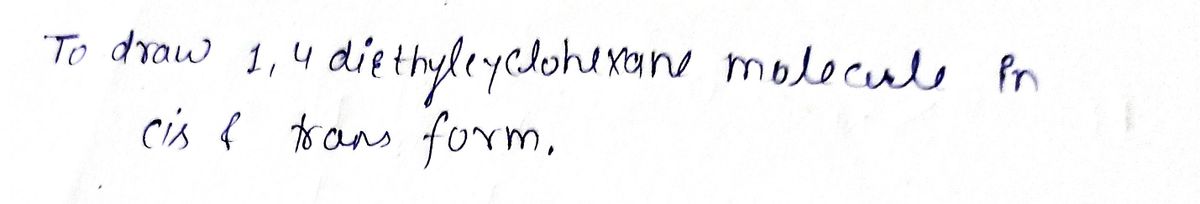 To draw 1,4 diethylcyclohexane molecule in
cis & trans form.